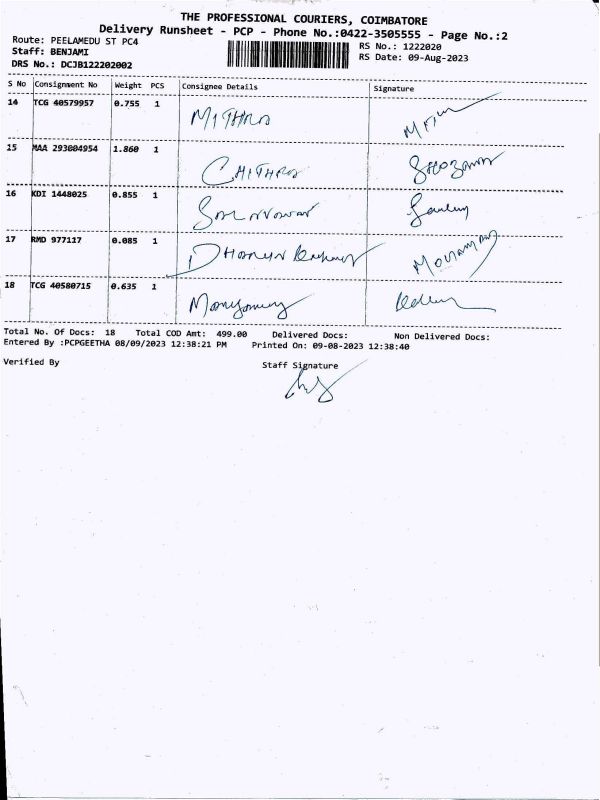 THE PROFESSIONAL COURIERS, COIMBATORE
Delivery Runsheet - PCP - Phone No.:0422-3505555 - Page No.:2
Route: PEELAMEDU ST PC4
Staff: BENJAMI
DRS No.: DCJB122202002
RS No.: 1222020
RS Date: 09-Aug-2023
S No Consignment No Weight PCS Consignee Details Signature
14 TCG 40579957 0.755 1 MITHRA
15 MAA 293004954 1.860 1 CHITHRA
16 KDI 1448025 0.855 1
17 RMD 977117 0.085 1
18 TCG 40580715 0.635 1
Total No. Of Docs: 18 Total COD Amt: 499.00 Delivered Docs: Non Delivered Docs:
Entered By :PCPGEETHA 08/09/2023 12:38:21 PM Printed On: 09-08-2023 12:38:40
Verified By Staff Signature